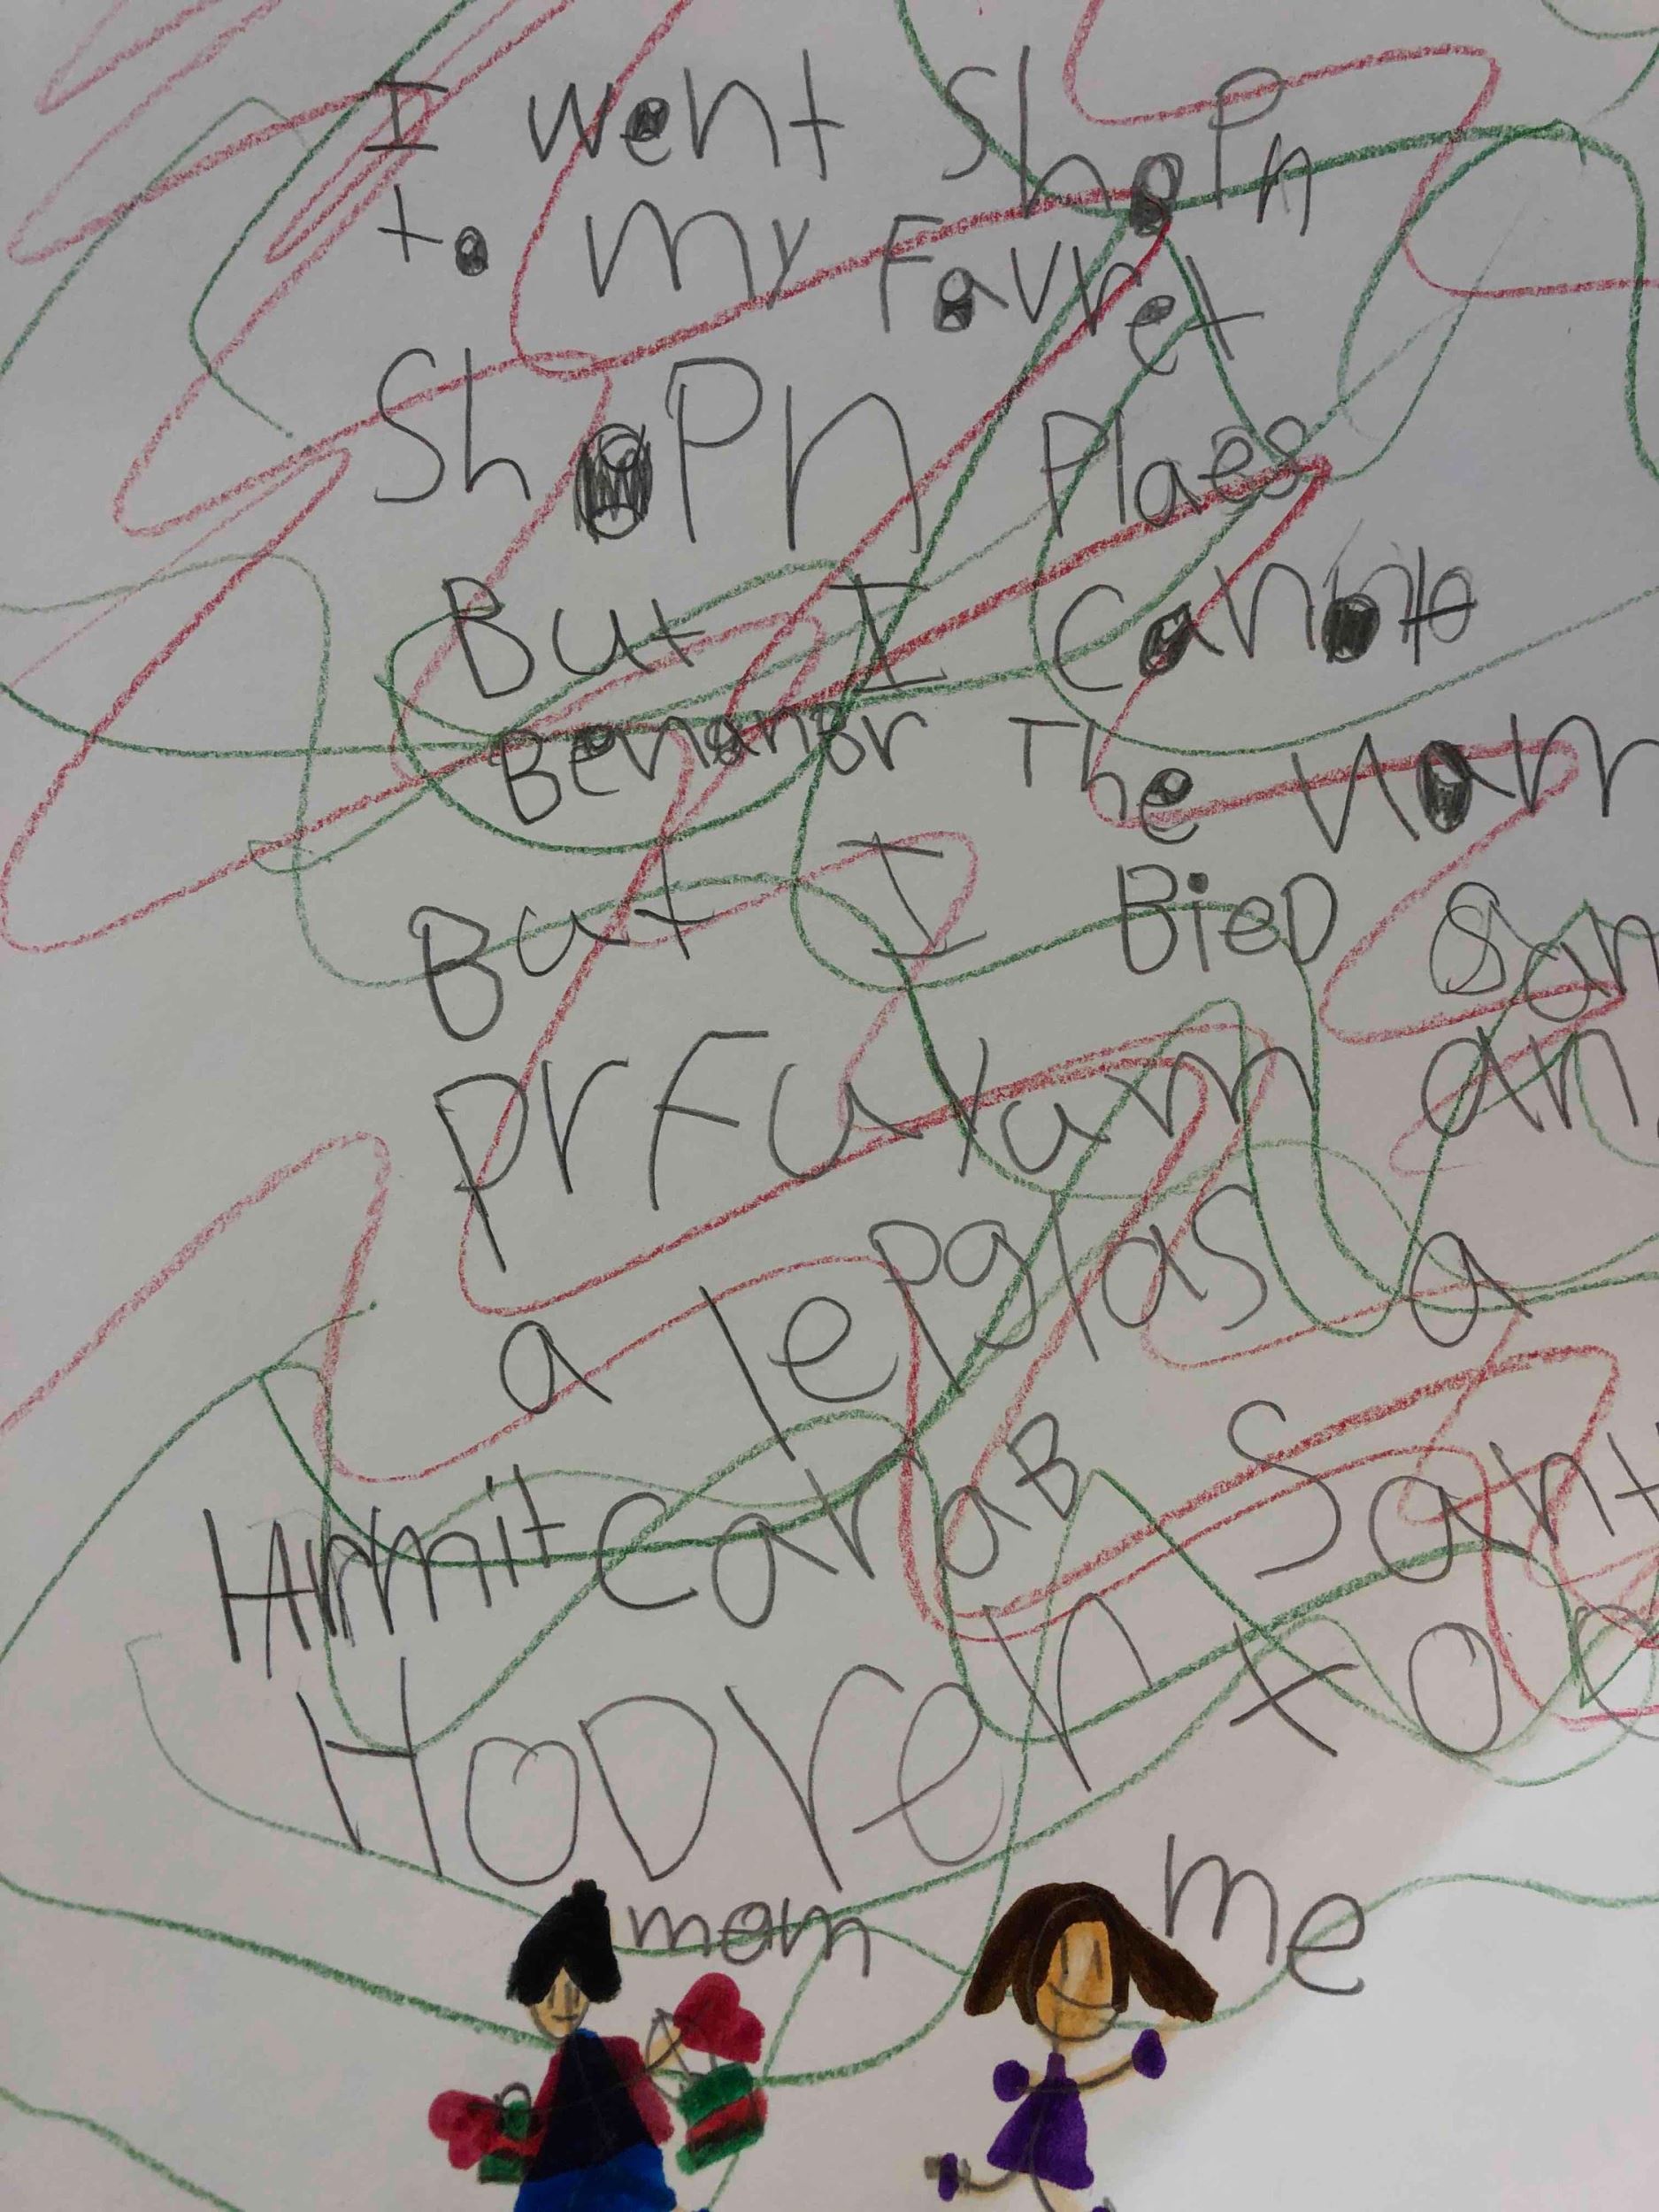 I went Shopn
to my Favret
Shopn Plaes
But I
Bemanbr The nam
But I BieD Som
PrFuyum an
a lepglas a
Hirmitcarab Sant
HoDren to
mom me